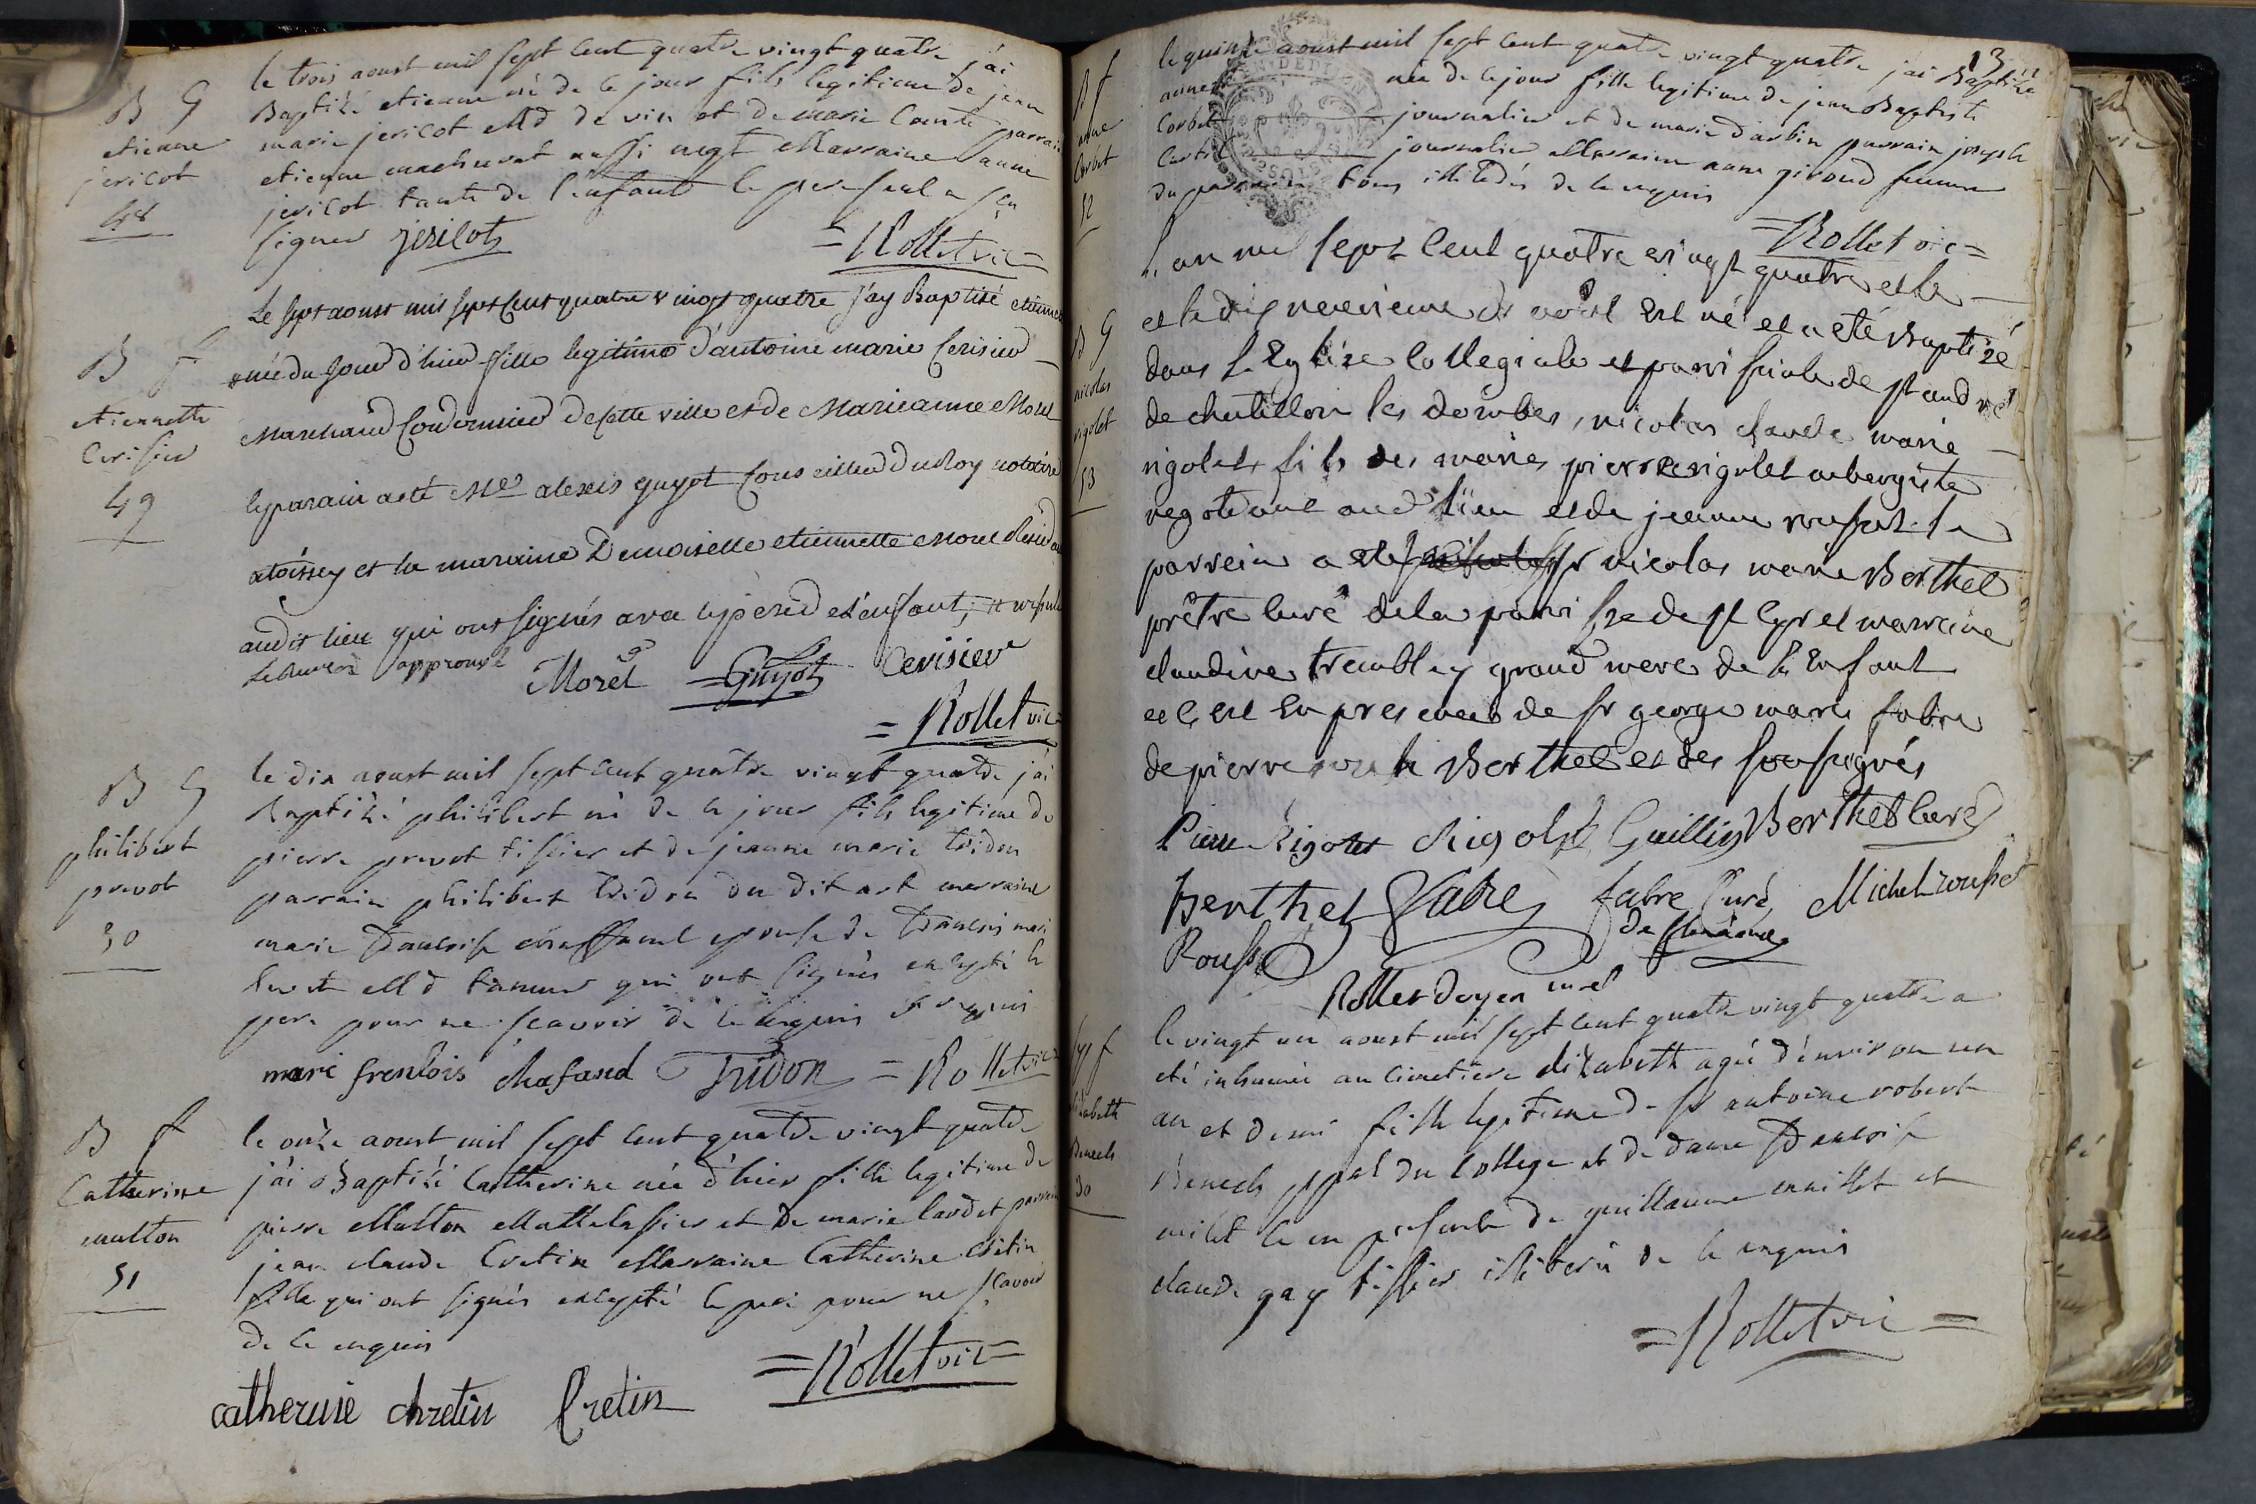 B G
etienne
jericot
48
le trois aoust mil sept cent quatre vingt quatre j'ai
Baptizé etienne né de ce jour fils legitime de jean
marie jericot Md de vin et de marie Comte parrain
etienne machurat aussi negt Marraine anne
jericot tante de l'enfant le pere seul a sçu
signer jericot
=Rollet vic=
B f
etiennette
Cerisier
49
Le sept aoust mil sept Cent quatre vingt quatre j'ay Baptisé etiennette
née du Jour d'hier fille legitime d'antoine marie Cerisier
Marchand Cordonnier de Cette ville et de Marieanne Morel
le parain a eté Me alexis guyot Conseiller du Roy notaire
a toissey et la maraine Demoiselle etiennette Morel
audit lieu qui ont signés avec le pere de l'enfant,
approuvé
Morel =Guyot Cerisier
=Rollet vic=
B G
philibert
prevot
50
le dix aoust mil sept cent quatre vingt quatre j'ai
Baptizé philibert né de ce jour fils legitime de
pierre prevot tissier et de jeanne marie tridon
parrain philibert tridon du dit art marraine
marie françoise chaffaud epouse de françois marie
Md tanneur qui ont signés excepté le
pere pour ne scavoir de ce enquis et requis
marie frenlois chafaud Tridon =Rollet vic=
B f
Catherine
multon
51
le onze aoust mil sept cent quatre vingt quatre
j'ai Baptizé Catherine née d'hier fille legitime de
pierre Multon Mattelassier et de marie lardet parrain
jean claude Cretin Marraine Catherine Cretin
fille qui ont signés excepté le pere pour ne scavoir
de ce enquis
=Rollet vic=
catherine chretin Cretin
13
B f
anne
Corbet
52
le quinze aoust mil sept cent quatre vingt quatre j'ai Baptizé
anne née de ce jour fille legitime de jean Baptiste
Corbet journalier et de marie darbin parrain joseph
journalier Marraine anne giroud femme
du parrain tous illiterés de ce enquis
=Rollet vic=
B G
nicolas
rigolet
53
L'an mil sept Cent quatre vingt quatre et le
et le dix neuvieme de aout Est né et a eté Baptizé
dans l'Eglise Collegiale et parroissiale de st andré
de chatillon les dombes, nicolas claude marie
rigolet fils des maries pierre rigolet aubergiste
negotiant aud lieu et de jeanne rousset le
parrein a eté sr nicolas marie Berthet
prêtre Curé de la parroisse de st Cyr et marreine
claudine trembley grand mere de l'Enfant
et C'est En presence de sr george marie fabre
de pierre Berthet et des soussignés
Pierre Rigolet Rigolet Guillin Berthet Curé
Berthet Fabre fabre Curé
Michel rousset
Rousset
Rollet doyen curé
Sep f
elizabeth
Benech
30
le vingt un aoust mil sept cent quatre vingt quatre a
eté inhumée au cimetiere elizabeth agée d'environ un
an et demi fille legitime de sr antoine robert
Benech ppal du College et de dame françoise
milet ce en presence de guillaume maillet et
claude gay tissier illiteré de ce enquis
=Rollet vic=